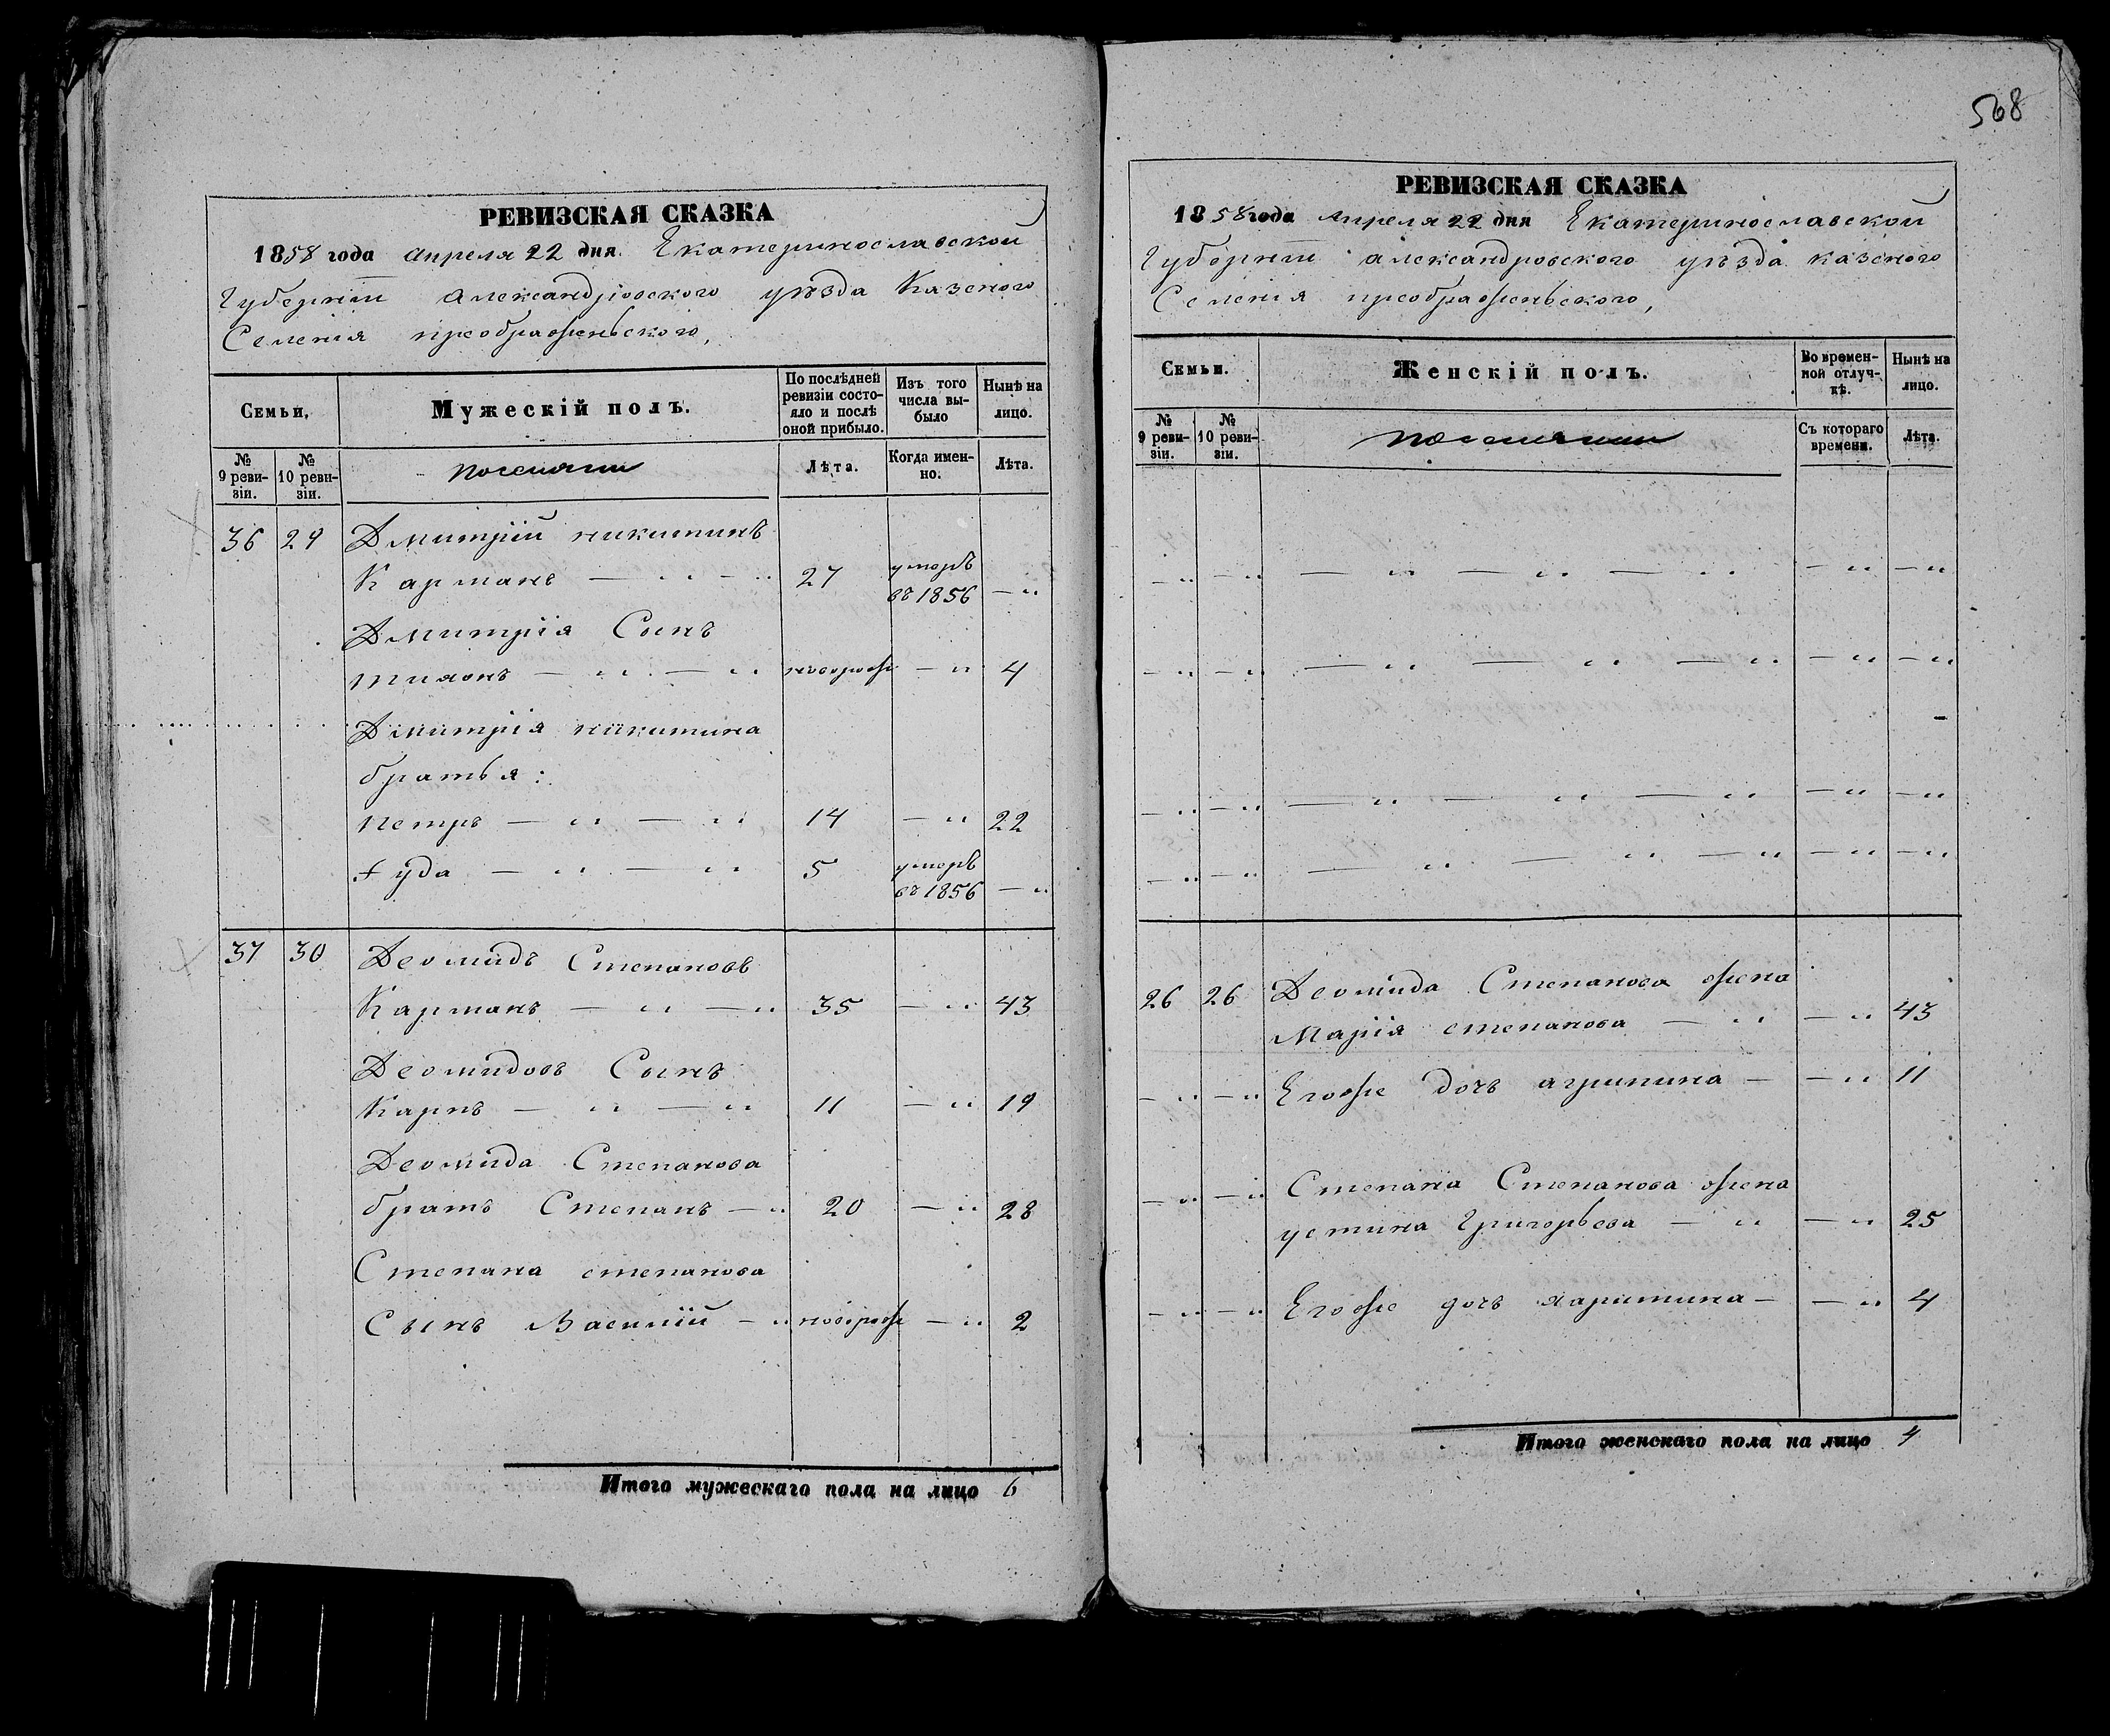 568
РЕВИЗСКАЯ СКАЗКА
1858 года апреля 22 дня Екатеринославской
Губерніи Александровского уезда Казеного
Селенія преображеньского,
Семьи,
Мужескій полъ.
По послѣдней ревизіи состояло и послѣ оной прибыло.
Изъ того числа выбыло
Нынѣ на лицо.
№ 9 ревизіи.
№ 10 ревизіи.
поселяни
Лѣта.
Когда именно.
Лѣта.
36 29 Дмитрій никитинъ
Карманъ — " — " 27 умеръ въ 1856 — "
Дмитрія Сынъ
тихонъ — " — " новорож — " 4
Дмитрія никитина
братья:
петръ — " — " 14 — " 22
фуда — " — " 5 умеръ въ 1856 — "
37 30 Деомидъ Степановъ
Карманъ — " — " 35 — " 43
Деомидовъ Сынъ
Карпъ — " — " 11 — " 19
Деомида Степанова
братъ Степанъ — " 20 — " 28
Степана степанова
Сынъ Василій — " новорож — " 2
Итого мужескаго пола на лицо 6
РЕВИЗСКАЯ СКАЗКА
1858 года апреля 22 дня Екатеринославской
Губерніи александровского уезда казеного
Селенія преобраеженьского,
Семьи.
Женскій полъ.
Во временной отлучкѣ.
Нынѣ на лицо.
№ 9 ревизіи.
№ 10 ревизіи.
поселянки
Съ котораго времени.
Лѣта.
— " — " — " — " — " — " — "
— " — " — " — " — " — " — "
— " — " — " — " — " — " — "
— " — " — " — " — " — " — "
26 26 Деомида Степанова жена
Марія степанова — " — " 43
— " — " Егоже дочь агрипина — — " 11
— " — " Степана Степанова жена
устина Григорьева — " — " 25
— " — " Егоже дочь харитина — — " 4
Итого женскаго пола на лицо 4